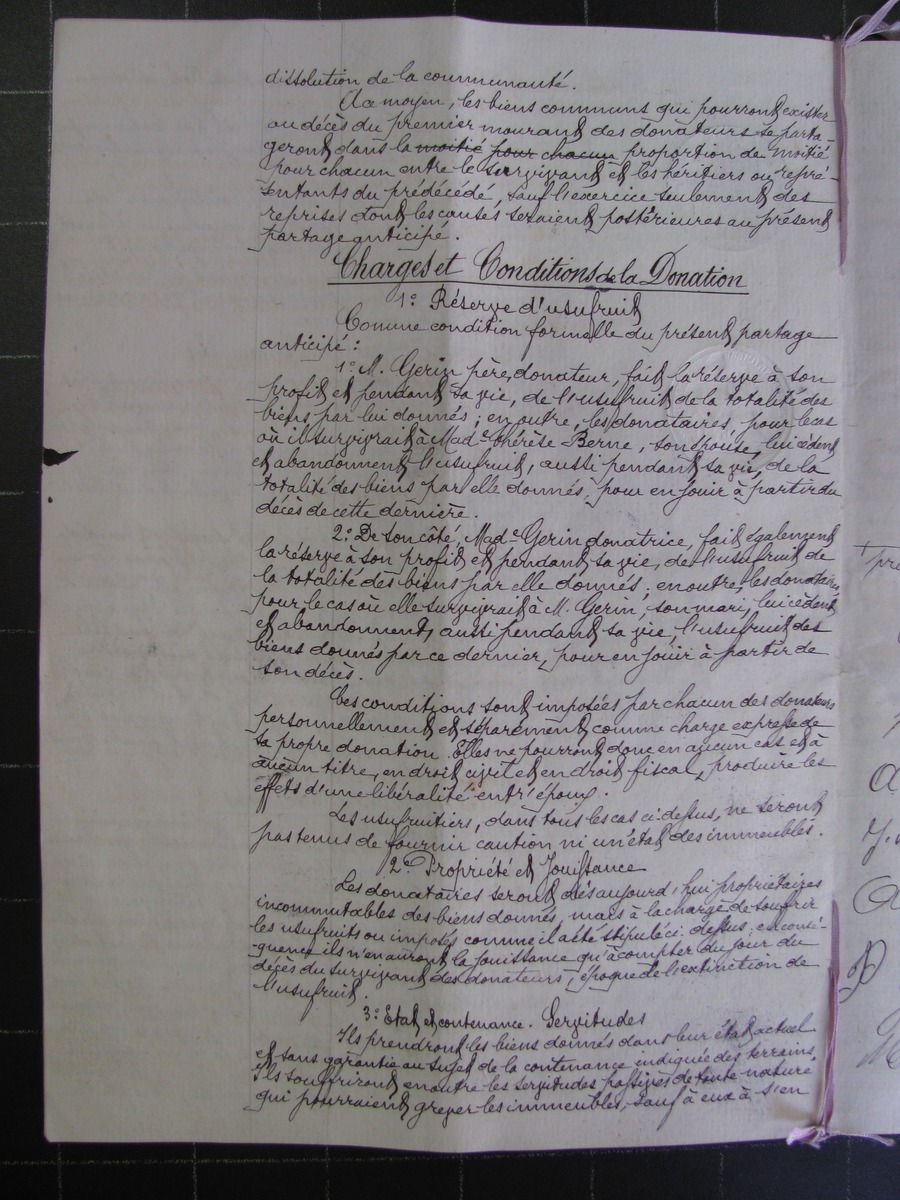 dissolution de la communauté.
Au moyen, les biens communs qui pourront exister
au décès du premier mourant des donateurs se parta-
geront dans la moitié pour chacun proportion de moitié
pour chacun entre le survivant et les héritiers ou repré-
sentants du prédécédé, sauf l'exercice seulement des
reprises dont les causes seraient postérieures au présent
partage anticipé.
Charges et Conditions de la Donation
1º Réserve d'usufruit
Comme condition formelle du présent partage
anticipé :
1º M. Gerin père, donateur, fait la réserve à son
profit et pendant sa vie, de l'usufruit de la totalité des
biens par lui donnés ; en outre, les donataires, pour le cas
où il survivrait à Made Thérèse Berne, son épouse, lui cèdent
et abandonnent l'usufruit, aussi pendant sa vie, de la
totalité des biens par elle donnés, pour en jouir à partir du
décès de cette dernière.
2º De son côté, Made Gerin donatrice, fait également
la réserve à son profit et pendant sa vie, de l'usufruit de
la totalité des biens par elle donnés ; en outre, les donataires
pour le cas où elle survivrait à M. Gerin, son mari, lui cèdent
et abandonnent, aussi pendant sa vie, l'usufruit des
biens donnés par ce dernier, pour en jouir à partir de
son décès.
Ces conditions sont imposées par chacun des donateurs
personnellement et séparément comme charge expresse de
sa propre donation. Elles ne pourront donc en aucun cas et à
aucun titre, en droit civil et en droit fiscal, produire les
effets d'une libéralité entr'époux.
Les usufruitiers, dans tous les cas ci-dessus, ne seront
pas tenus de fournir caution ni un état des immeubles.
2º Propriété et Jouissance
Les donataires seront dès aujourd'hui propriétaires
incommutables des biens donnés, mais à la charge de souffrir
les usufruits ou imposés comme il a été stipulé ci-dessus ; en consé-
quence ils n'en auront la jouissance qu'à compter du jour du
décès du survivant des donateurs, époque de l'extinction de
l'usufruit.
3º Etat et contenance. Servitudes
Ils prendront les biens donnés dans leur état actuel
et sans garantie au sujet de la contenance indiquée des terrains,
ils souffriront en outre les servitudes passives de toute nature
qui pourraient grever les immeubles, sauf à eux à s'en